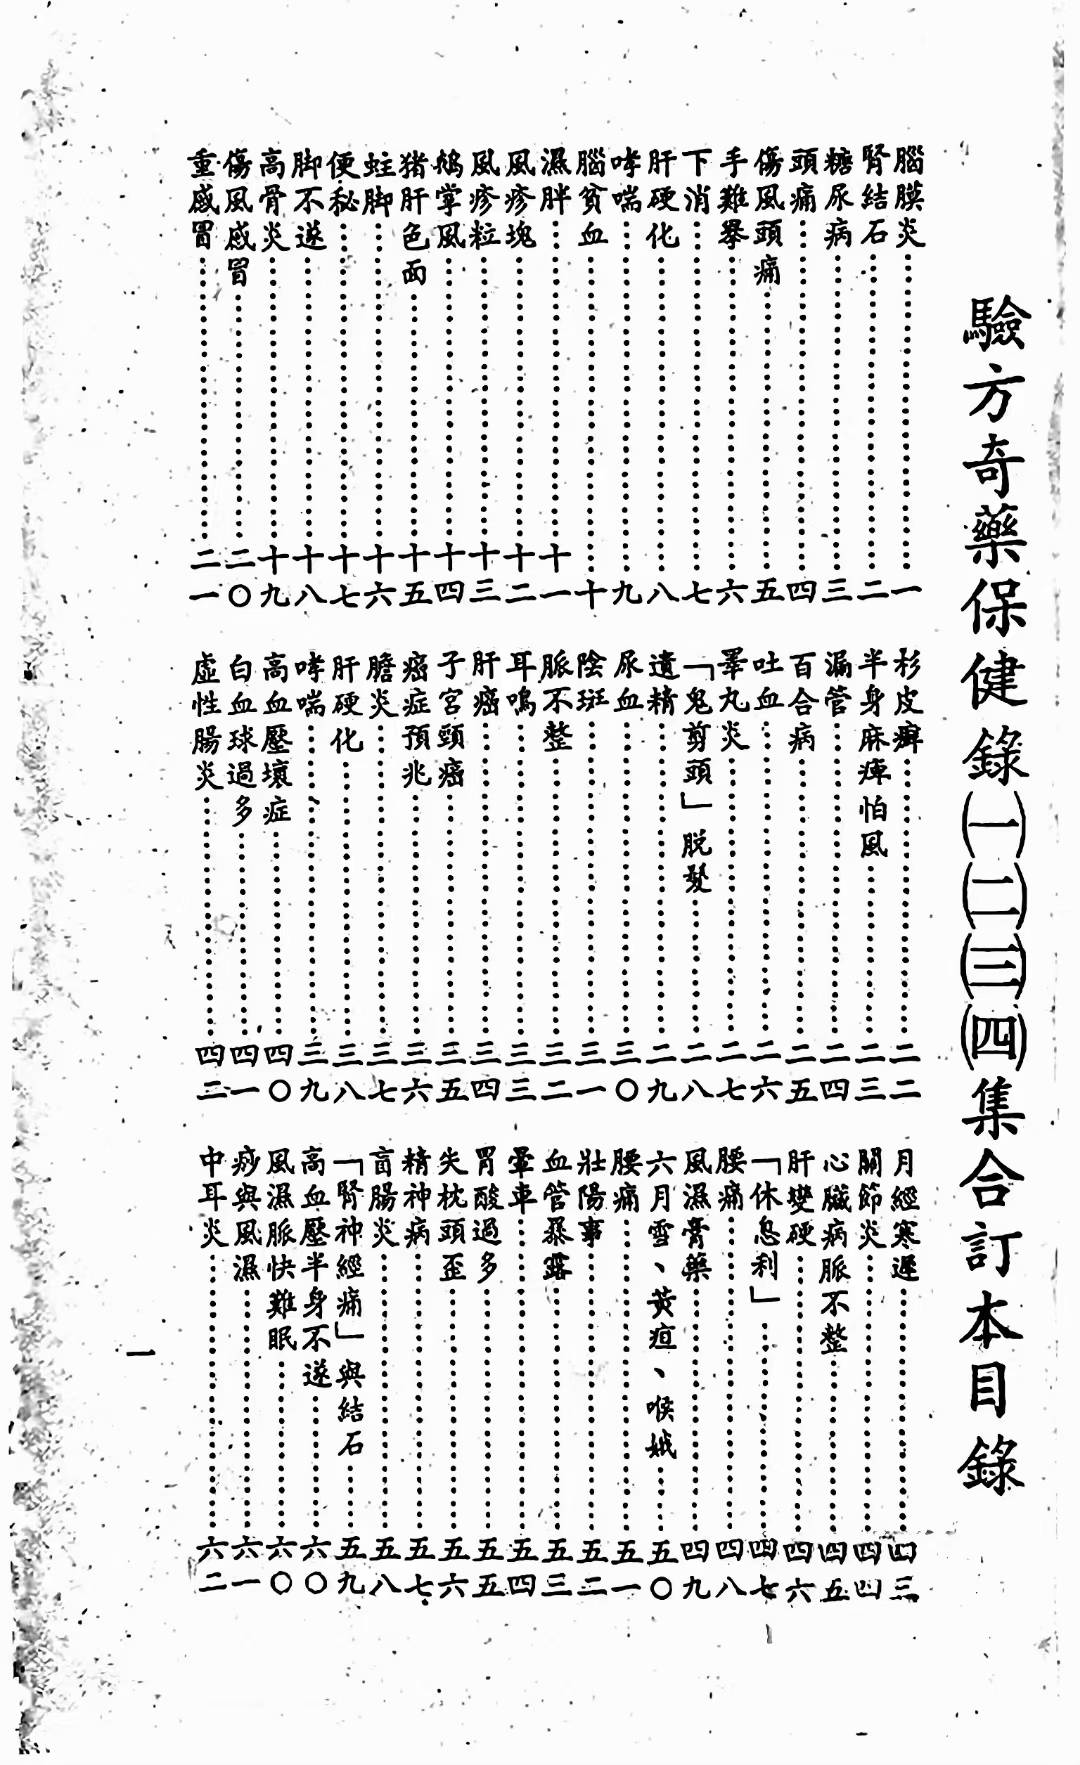 驗方奇藥保健錄㈠㈡㈢㈣集合訂本目錄
腦膜炎⋯⋯一
腎結石⋯⋯二
糖尿病⋯⋯三
頭痛⋯⋯四
傷風頭痛⋯⋯五
手難舉⋯⋯六
下消⋯⋯七
肝硬化⋯⋯八
哮喘⋯⋯九
腦貧血⋯⋯十
濕胖⋯⋯十一
風疹塊⋯⋯十二
風疹粒⋯⋯十三
鵝掌風⋯⋯十四
猪肝色面⋯⋯十五
蛀脚⋯⋯十六
便秘⋯⋯十七
脚不遂⋯⋯十八
高骨炎⋯⋯十九
傷風感冒⋯⋯二〇
重感冒⋯⋯二一
杉皮癬⋯⋯二二
半身麻痺怕風⋯⋯二三
漏管⋯⋯二四
百合病⋯⋯二五
吐血⋯⋯二六
睪丸炎⋯⋯二七
「鬼剪頭」脱髮⋯⋯二八
遺精⋯⋯二九
尿血⋯⋯三〇
陰斑⋯⋯三一
脈不整⋯⋯三二
耳鳴⋯⋯三三
肝癌⋯⋯三四
子宮頸癌⋯⋯三五
癌症預兆⋯⋯三六
膽炎⋯⋯三七
肝硬化⋯⋯三八
哮喘⋯⋯三九
高血壓壞症⋯⋯四〇
白血球過多⋯⋯四一
虛性腸炎⋯⋯四二
月經寒遲⋯⋯四三
關節炎⋯⋯四四
心臟病脈不整⋯⋯四五
肝變硬⋯⋯四六
「休息利」⋯⋯四七
腰痛⋯⋯四八
風濕膏藥⋯⋯四九
六月雪、黃疸、喉蛾⋯⋯五〇
腰痛⋯⋯五一
壯陽事⋯⋯五二
血管暴露⋯⋯五三
暈車⋯⋯五四
胃酸過多⋯⋯五五
失枕頭歪⋯⋯五六
精神病⋯⋯五七
盲腸炎⋯⋯五八
「腎神經痛」與結石⋯⋯五九
高血壓半身不遂⋯⋯六〇
風濕脈快難眠⋯⋯六〇
痧與風濕⋯⋯六一
中耳炎⋯⋯六二
一